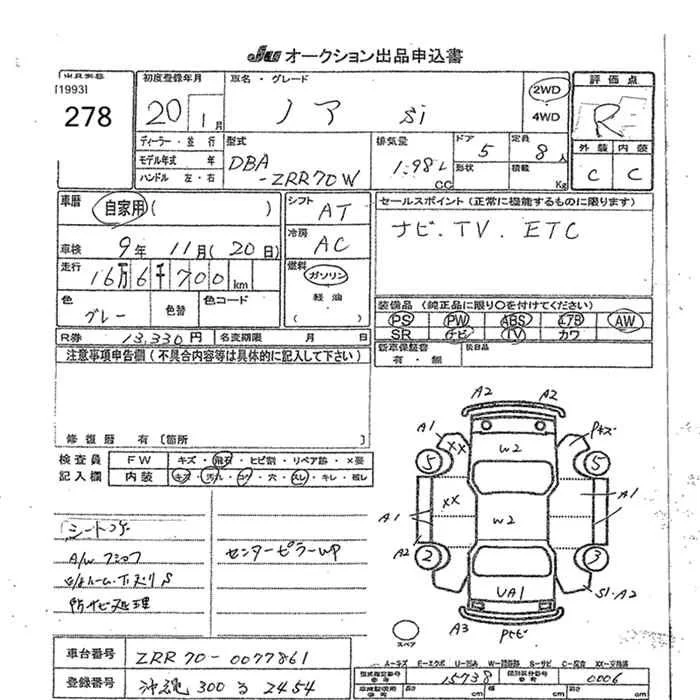 JU オークション出品申込書
出品票番
[1993]
278
初度登録年月
20 1月
車名・グレード
ノア Si
2WD
4WD
評価点
R
外装 内装
C C
ディーラー・並行
モデル年式 年
ハンドル 左・右
型式
DBA
-ZRR70W
排気量
1.98L
CC
ドア
5
形状
定員
8人
積載
Kg
車歴
自家用( )
車検
9年 11月(20日)
走行
16万6千700km
色
グレー
色替
色コード
シフト
AT
冷房
AC
燃料
ガソリン
軽油
( )
セールスポイント(正常に機能するものに限ります)
ナビ.TV.ETC
装備品(純正品に限り○を付けてください)
PS PW ABS エアB AW
SR ナビ TV カワ
新車保証書
有・無
後日品
R券 13,330円
名変期限 月 日
注意事項申告欄(不具合内容等は具体的に記入して下さい)
修復歴 有〔箇所 〕
検査員
記入欄
FW キズ・飛石・ヒビ割・リペア跡・×要
内装 キズ・汚れ・コゲ・穴・スレ・キレ・破レ
シートコゲ
A/Wフショク
防サビ処理
センターピラーWP
A2 A2
A1 XX W2 Pキズ
5 5
XX
A1 W2 A1
A2 2 3
UA1 S1.A2
A3 Pサビ
スペア
A-キズ E-エクボ U-凹み W-補修跡 S-サビ C-腐食 XX-交換済
車台番号
ZRR70-0077861
登録番号
沖縄 300 る 2454
型式指定番号
15738
類別区分番号
0006